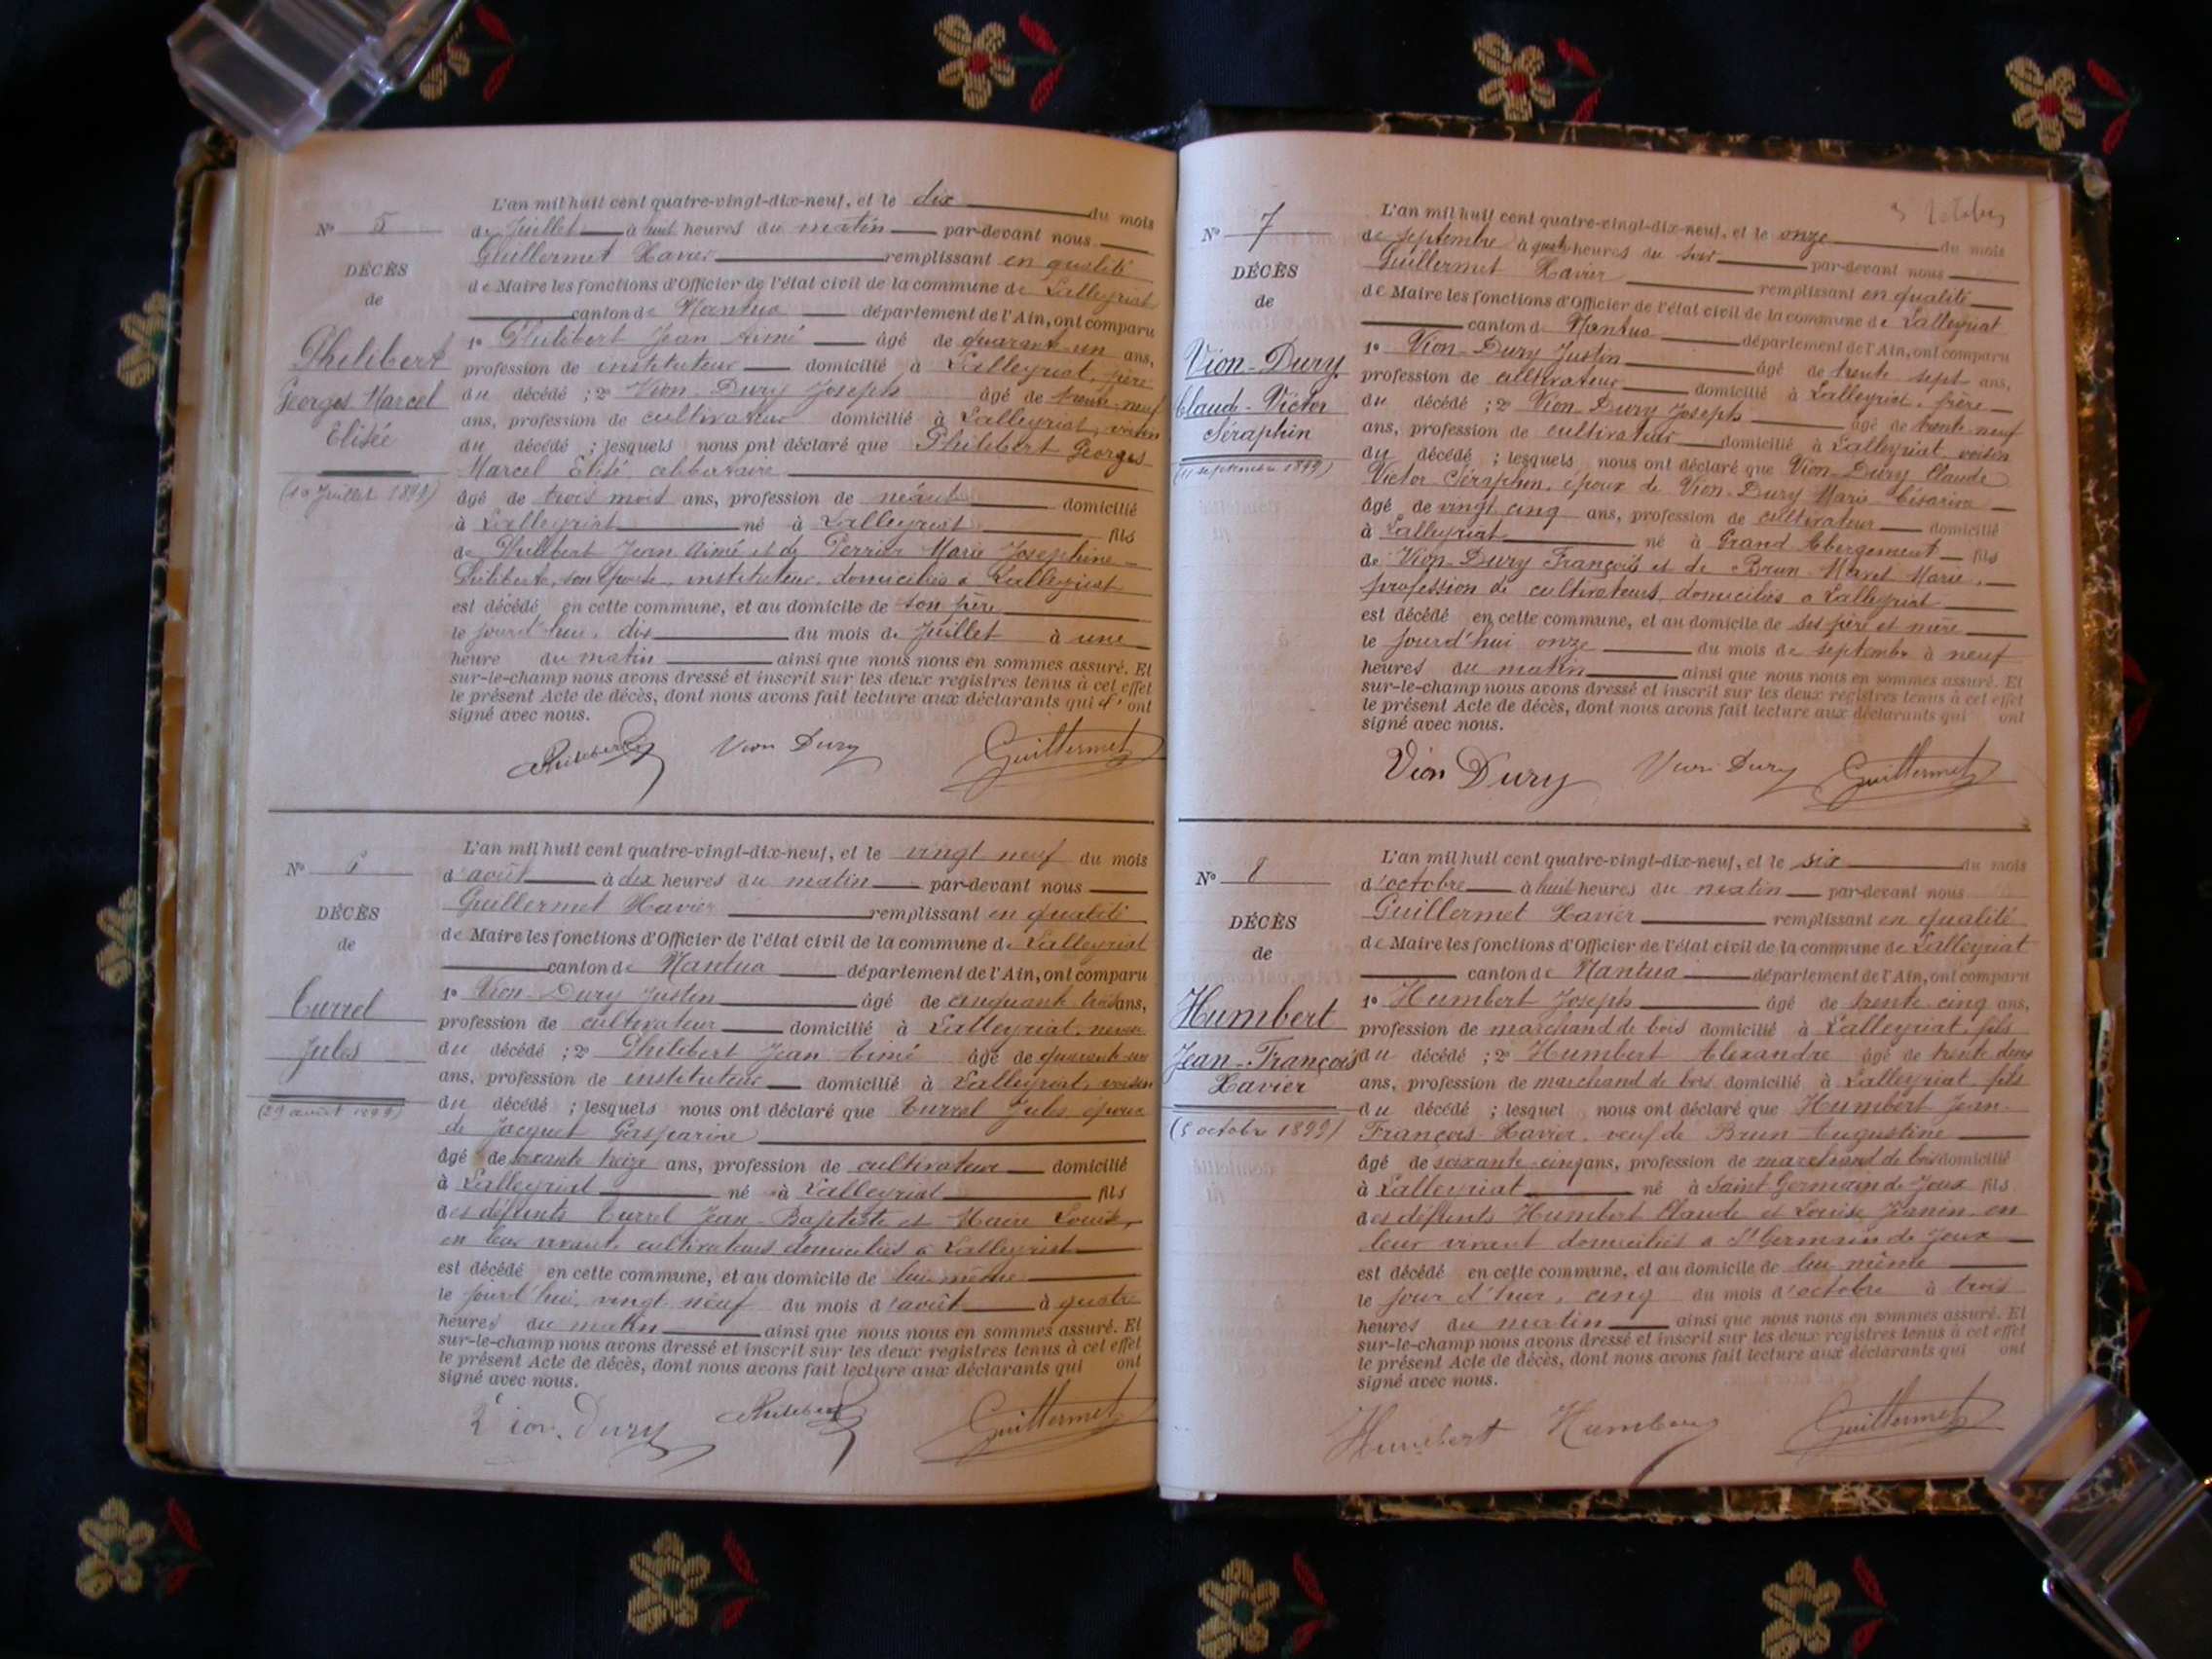 N° 5
DÉCÈS
de
Philibert
Georges Marcel
Elisée
(10 Juillet 1899)
L'an mil huit cent quatre-vingt-dix-neuf, et le dix du mois
de Juillet à huit heures du matin par-devant nous
Guillermet Xavier remplissant en qualité
de Maire les fonctions d'Officier de l'état civil de la commune de Lalleyriat
canton de Nantua département de l'Ain, ont comparu
1° Philibert Jean Aimé âgé de quarante-un ans,
profession de instituteur domicilié à Lalleyriat, père
du décédé ; 2° Vion-Dury Joseph âgé de trente-neuf
ans, profession de cultivateur domicilié à Lalleyriat, voisin
du décédé ; lesquels nous ont déclaré que Philibert Georges
Marcel Elisé, célibataire
âgé de trois mois ans, profession de néant domicilié
à Lalleyriat né à Lalleyriat fils
de Philibert Jean Aimé et de Perrier Marie Josephine
Philiberte, son épouse, instituteur, domiciliés à Lalleyriat
est décédé en cette commune, et au domicile de son père
le jourd'hui, dix du mois de Juillet à une
heure du matin ainsi que nous nous en sommes assuré. Et
sur-le-champ nous avons dressé et inscrit sur les deux registres tenus à cet effet
le présent Acte de décès, dont nous avons fait lecture aux déclarants qui l'ont
signé avec nous.
Philibert Vion Dury Guillermet
N° 6
DÉCÈS
de
Currel
Jules
(29 août 1899)
L'an mil huit cent quatre-vingt-dix-neuf, et le vingt neuf du mois
d'août à dix heures du matin par-devant nous
Guillermet Xavier remplissant en qualité
de Maire les fonctions d'Officier de l'état civil de la commune de Lalleyriat
canton de Nantua département de l'Ain, ont comparu
1° Vion-Dury Justin âgé de cinquante trois ans,
profession de cultivateur domicilié à Lalleyriat, neveu
du décédé ; 2° Philibert Jean Aimé âgé de quarante-un
ans, profession de instituteur domicilié à Lalleyriat, voisin
du décédé ; lesquels nous ont déclaré que Currel Jules, époux
de Jacquet Gasparine
âgé de soixante treize ans, profession de cultivateur domicilié
à Lalleyriat né à Lalleyriat fils
des défunts Currel Jean-Baptiste et Maire Louise,
en leur vivant, cultivateurs domiciliés à Lalleyriat
est décédé en cette commune, et au domicile de lui-même
le jourd'hui, vingt neuf du mois d'août à quatre
heures du matin ainsi que nous nous en sommes assuré. Et
sur-le-champ nous avons dressé et inscrit sur les deux registres tenus à cet effet
le présent Acte de décès, dont nous avons fait lecture aux déclarants qui ont
signé avec nous.
Vion. Dury Philibert Guillermet
N° 7
DÉCÈS
de
Vion-Dury
Claude-Victor
Séraphin
(11 septembre 1899)
L'an mil huit cent quatre-vingt-dix-neuf, et le onze du mois
de septembre à quatre heures du soir par-devant nous
Guillermet Xavier remplissant en qualité
de Maire les fonctions d'Officier de l'état civil de la commune de Lalleyriat
canton de Nantua département de l'Ain, ont comparu
1° Vion-Dury Justin âgé de trente sept ans,
profession de cultivateur domicilié à Lalleyriat, frère
du décédé ; 2° Vion-Dury Joseph âgé de trente-neuf
ans, profession de cultivateur domicilié à Lalleyriat, voisin
du décédé ; lesquels nous ont déclaré que Vion-Dury Claude
Victor Séraphin, époux de Vion-Dury Marie Césarine
âgé de vingt cinq ans, profession de cultivateur domicilié
à Lalleyriat né à Grand Abergement fils
de Vion-Dury François et de Brun-Maret Marie,
profession de cultivateurs, domiciliés à Lalleyriat
est décédé en cette commune, et au domicile de ses père et mère
le jourd'hui onze du mois de septembre à neuf
heures du matin ainsi que nous nous en sommes assuré. Et
sur-le-champ nous avons dressé et inscrit sur les deux registres tenus à cet effet
le présent Acte de décès, dont nous avons fait lecture aux déclarants qui ont
signé avec nous.
Vion Dury Vion Dury Guillermet
N° 8
DÉCÈS
de
Humbert
Jean-François
Xavier
(5 octobre 1899)
L'an mil huit cent quatre-vingt-dix-neuf, et le six du mois
d'octobre à huit heures du matin par-devant nous
Guillermet Xavier remplissant en qualité
de Maire les fonctions d'Officier de l'état civil de la commune de Lalleyriat
canton de Nantua département de l'Ain, ont comparu
1° Humbert Joseph âgé de trente-cinq ans,
profession de marchand de bois domicilié à Lalleyriat, fils
du décédé ; 2° Humbert Alexandre âgé de trente deux
ans, profession de marchand de bois domicilié à Lalleyriat, fils
du décédé ; lesquel nous ont déclaré que Humbert Jean-
François-Xavier, veuf de Brun Augustine
âgé de soixante-cinq ans, profession de marchand de bois domicilié
à Lalleyriat né à Saint Germain de Joux fils
des défunts Humbert Claude et Louise Janin, en
leur vivant domiciliés à St Germain de Joux
est décédé en cette commune, et au domicile de lui même
le jour d'hier, cinq du mois d'octobre à trois
heures du matin ainsi que nous nous en sommes assuré. Et
sur-le-champ nous avons dressé et inscrit sur les deux registres tenus à cet effet
le présent Acte de décès, dont nous avons fait lecture aux déclarants qui ont
signé avec nous.
Humbert Humbert Guillermet